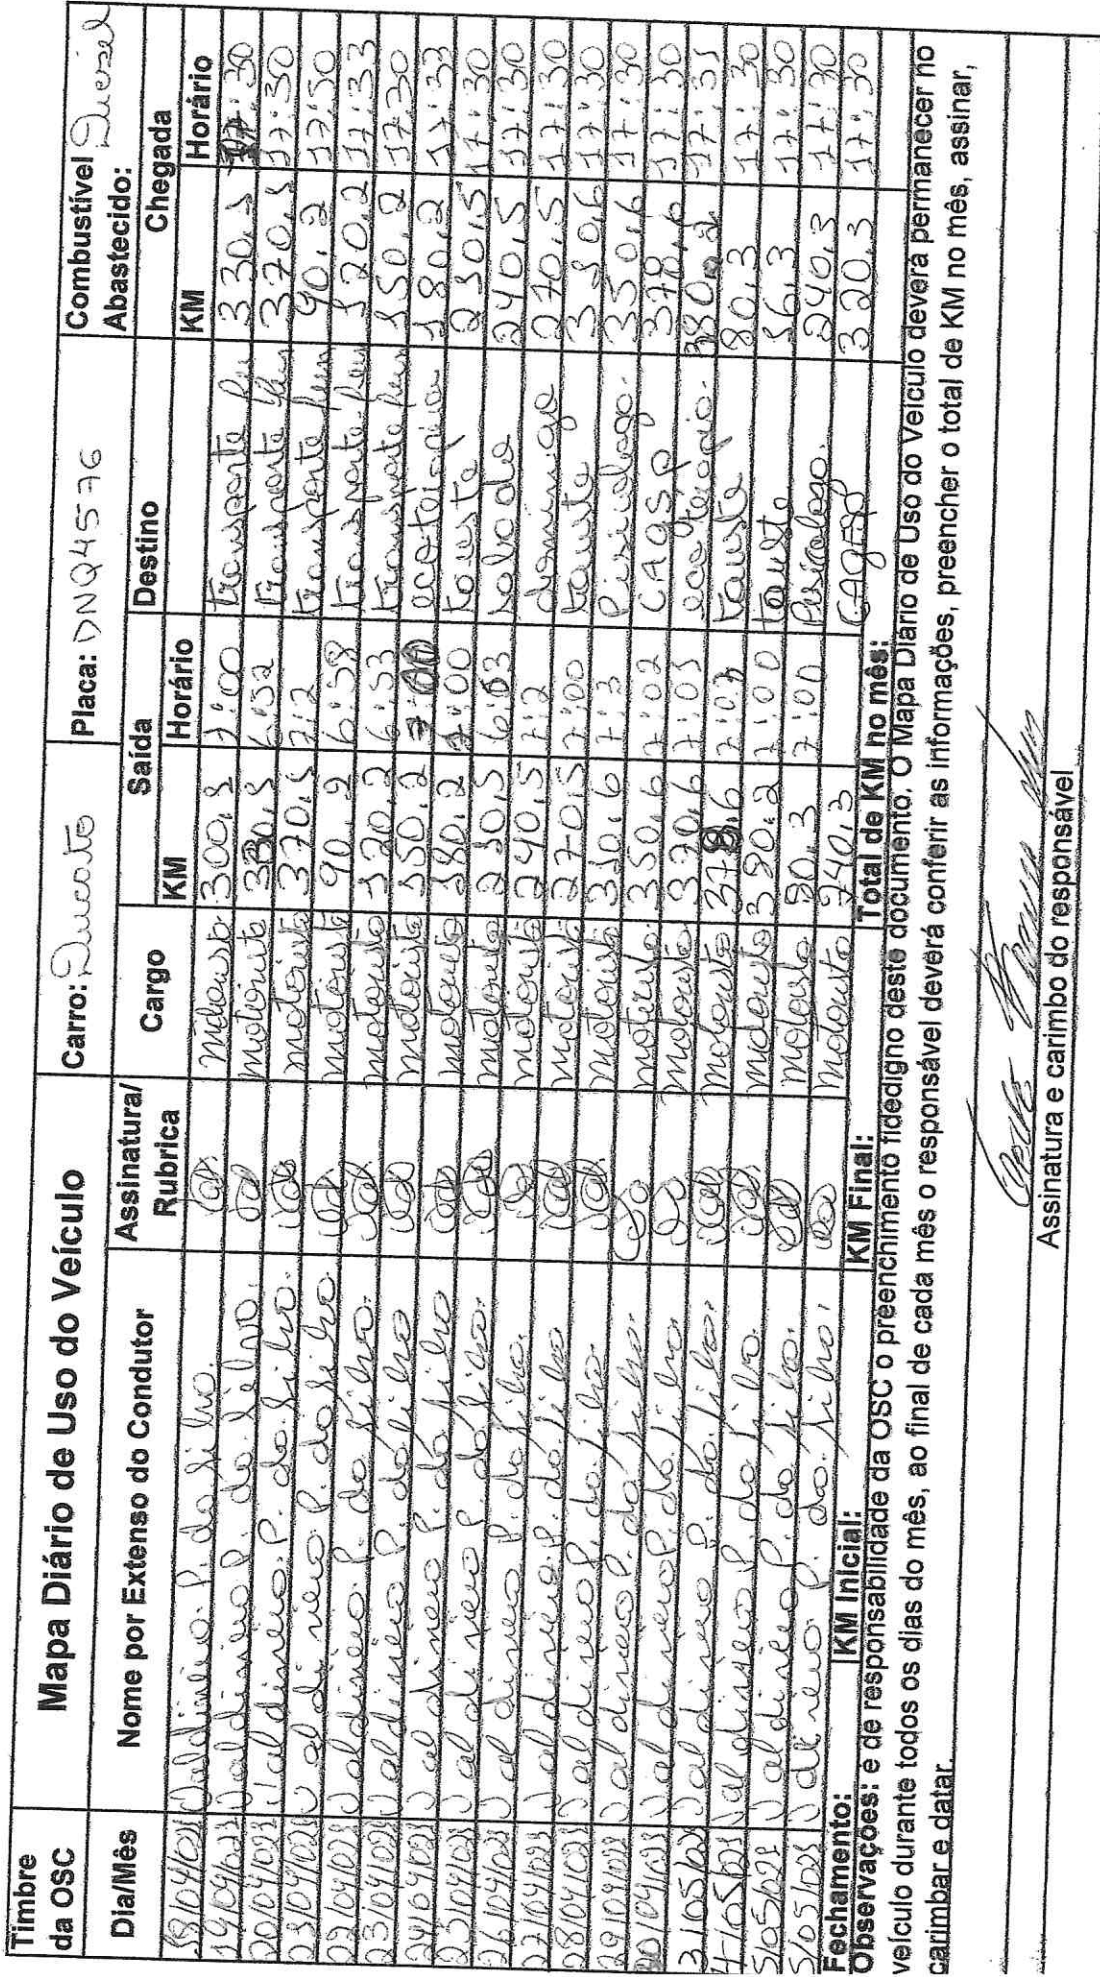 Timbre da OSC
Mapa Diário de Uso do Veículo
Carro: Ducato
Placa: DNQ4576
Combustível Abastecido: Diesel
Dia/Mês
Nome por Extenso do Condutor
Assinatura/ Rubrica
Cargo
Saída
Destino
Chegada
KM
Horário
KM
Horário
18/04/023 Valdineio P. da Silva. motorista 300,5 7:00 transporte 330,5 17:30
19/04/023 Valdineio P. da Silva. motorista 330,5 6:52 transporte 370,5 17:30
20/04/023 Valdineio P. da Silva. motorista 370,5 7:2 transporte 90,2 17:30
23/04/023 Valdineio P. da Silva. motorista 90,2 6:58 transporte 120,2 17:33
22/04/023 Valdineio P. da Silva. motorista 120,2 6:53 transporte 150,2 17:30
23/04/023 Valdineio P. da Silva motorista 150,2 7:00 ecoterapia 180,2 17:33
24/04/023 Valdineio P. da Silva motorista 180,2 7:00 tauste 230,5 17:30
25/04/023 Valdineio P. da Silva. motorista 230,5 6:53 sabado 240,5 17:30
26/04/023 Valdineio P. da Silva. motorista 240,5 7:2 domingo 270,5 17:30
27/04/023 Valdineio P. da Silva motorista 270,5 7:00 tauste 310,6 17:30
28/04/023 Valdineio P. da Silva. motorista 310,6 7:3 Psicologo. 350,6 17:30
29/04/023 Valdineio P. da Silva. motorista 350,6 7:02 CAGSP 370,6 17:30
30/04/023 Valdineio P. da Silva. motorista 370,6 7:05 ecoterapia. 380,2 17:35
3/05/023 Valdineio P. da Silva. motorista 378,6 7:03 tauste 80,3 17:30
4/05/023 Valdineio P. da Silva. motorista 380,2 7:00 tauste 56,3 17:30
5/05/023 Valdineio P. da Silva. motorista 80,3 7:00 Psicologo. 240,3 17:30
5/05/023 Valdineio P. da Silva. motorista 240,3 CAGESP 320,3 17:30
Fechamento: KM Inicial: KM Final: Total de KM no mês:
Observações: é de responsabilidade da OSC o preenchimento fidedigno deste documento. O Mapa Diário de Uso do Veículo deverá permanecer no
veículo durante todos os dias do mês, ao final de cada mês o responsável deverá conferir as informações, preencher o total de KM no mês, assinar,
carimbar e datar.
Assinatura e carimbo do responsável